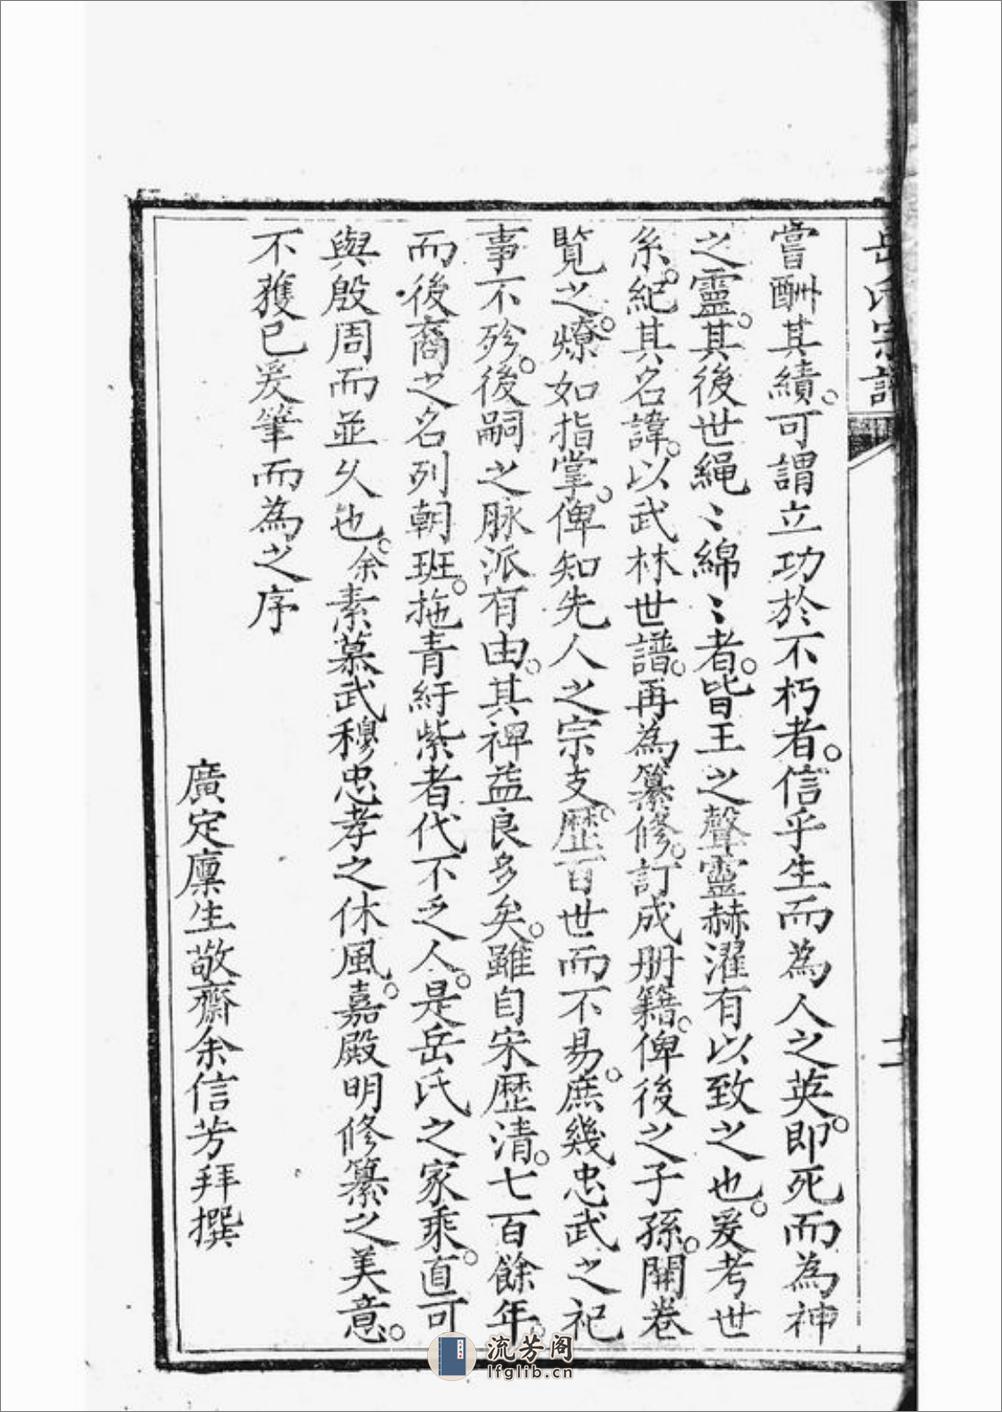 岳氏宗譜
二
嘗酬其績。可謂立功於不朽者。信乎生而為人之英。即死而為神
之靈。其後世繩〻綿〻者。皆王之聲靈赫濯有以致之也。爰考世
系。紀其名諱。以武林世譜。再為纂修。訂成册籍。俾後之子孫。開卷
覽之。燎如指掌。俾知先人之宗支。歷百世而不易。庶幾忠武之祀
事不殄。後嗣之脉派有由。其裨益良多矣。雖自宋歷清。七百餘年。
而後裔之名列朝班。拖青紆紫者代不乏人。是岳氏之家乘。直可
與殷周而並久也。余素慕武穆忠孝之休風。嘉殿明修纂之美意。
不獲已爰筆而為之序
廣定廩生敬齋余信芳拜撰
流芳阁
lfglib.cn